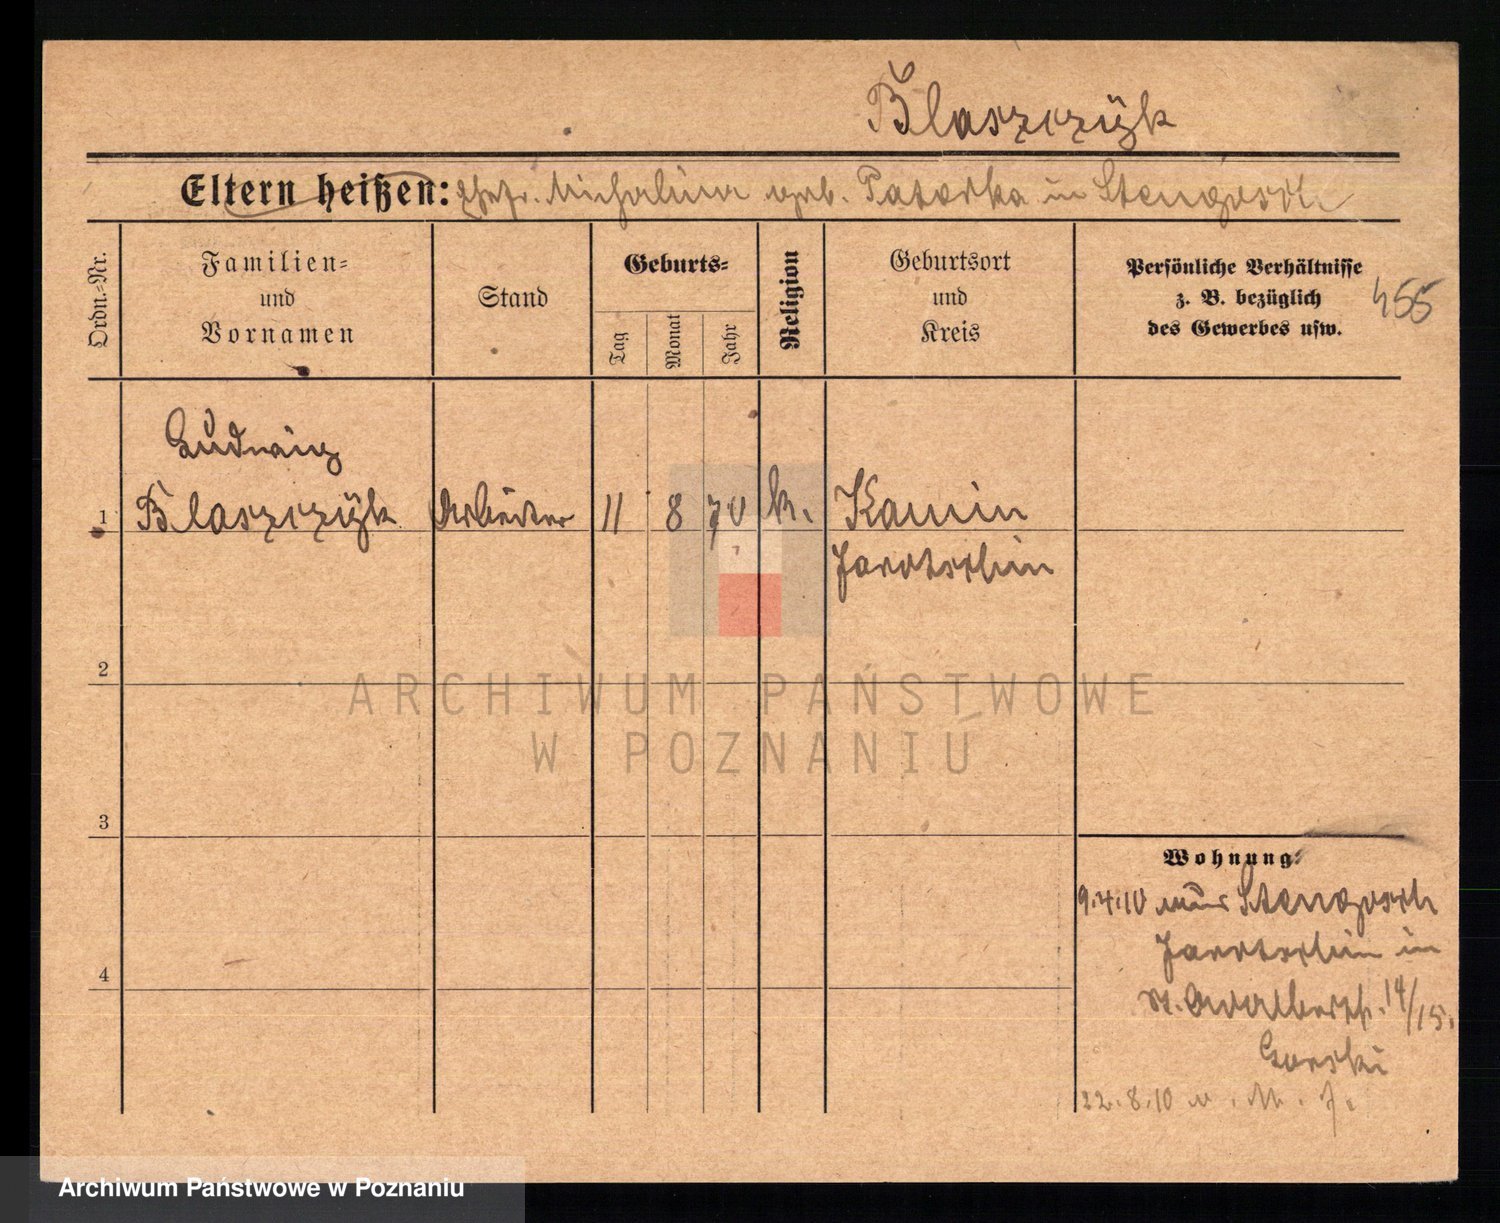 Blaszczÿk
Eltern heißen: Ehefr. Micholina geb. Patorka in Stengosch
Ordn.=Nr.
Familien=
und
Vornamen
Stand
Geburts=
Tag
Monat
Jahr
Religion
Geburtsort
und
Kreis
Persönliche Verhältnisse
z. B. bezüglich
des Gewerbes usw.
455
Ludwig
1 Blaszczÿk Arbeiter 11 8 70 k. Kamin
Jarotschin
ARCHIWUM PAŃSTWOWE
W POZNANIU
2
3
4
Wohnung:
9.4.10 aus Stengosch
Jarotschin in
St. 14/15.
Gorski
22.8.10 n. M. J.
Archiwum Państwowe w Poznaniu